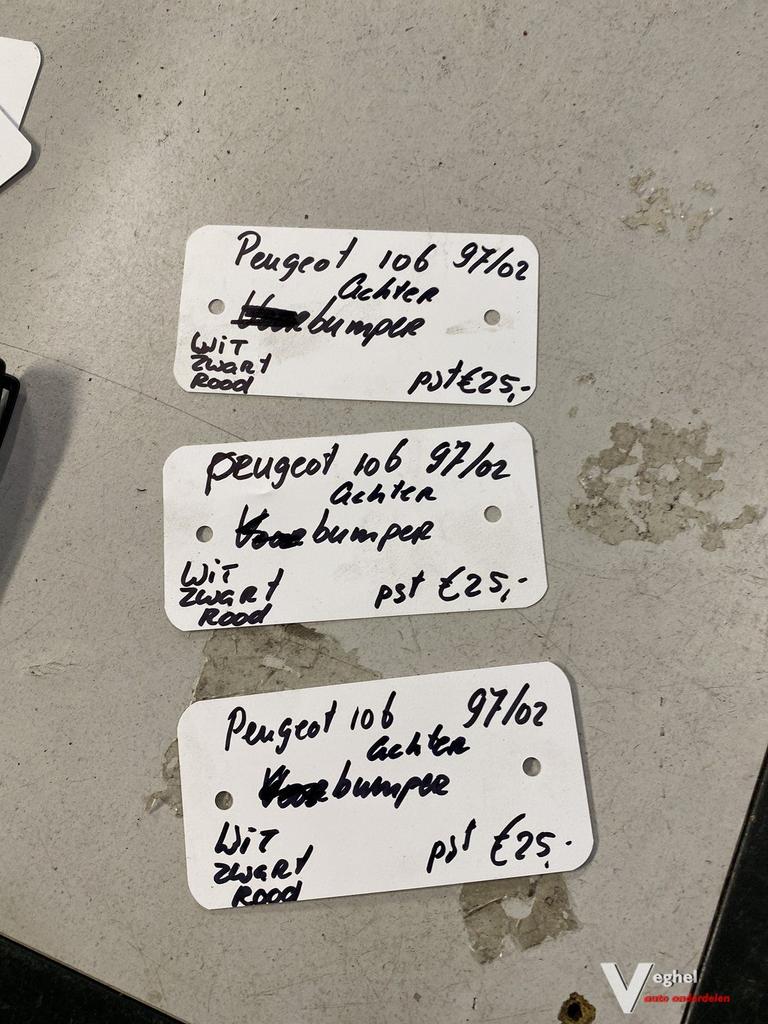 Peugeot 106 97/02
Achter
Voorbumper
WiT
zwart
Rood
pst €25,-
peugeot 106 97/02
Achter
Voorbumper
WiT
zwart
Rood
pst €25,-
Peugeot 106 97/02
Achter
Voorbumper
WiT
zwart
Rood
pst €25,-
Veghel
auto onderdelen